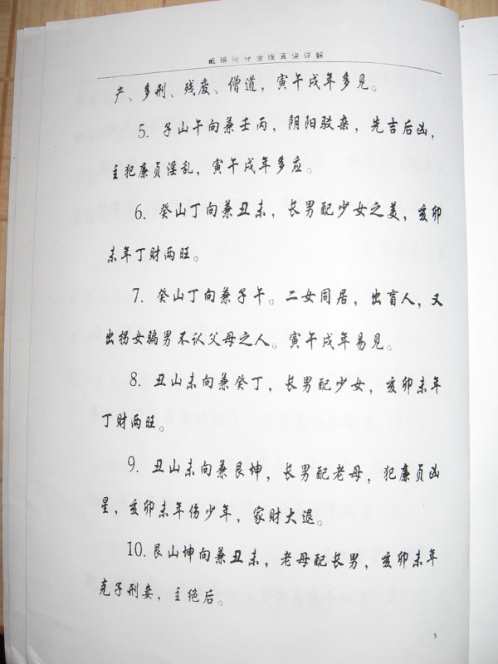 产、多刑、残废、僧道，寅午戌年多见。
5. 子山午向兼壬丙，阴阳驳杂，先吉后凶，
主犯廉贞淫乱，寅午戌年多应。
6. 癸山丁向兼丑未，长男配少女之美，亥卯
未年丁财两旺。
7. 癸山丁向兼子午。二女同居，出盲人，又
出拐女骗男不认父母之人。寅午戌年易见。
8. 丑山未向兼癸丁，长男配少女，亥卯未年
丁财两旺。
9. 丑山未向兼艮坤，长男配老母，犯廉贞凶
星，亥卯未年伤少年，家财大退。
10. 艮山坤向兼丑未，老母配长男，亥卯未年
克子刑妻，主绝后。